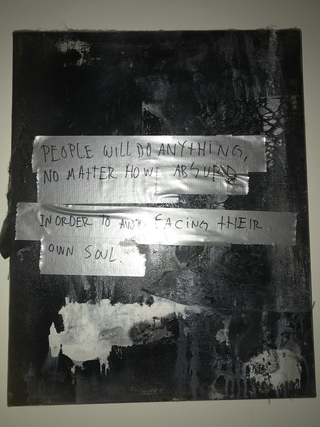 PEOPLE WILL DO ANYTHING,
NO MATTER HOW ABSURD
IN ORDER TO FACING THEIR
OWN SOUL.